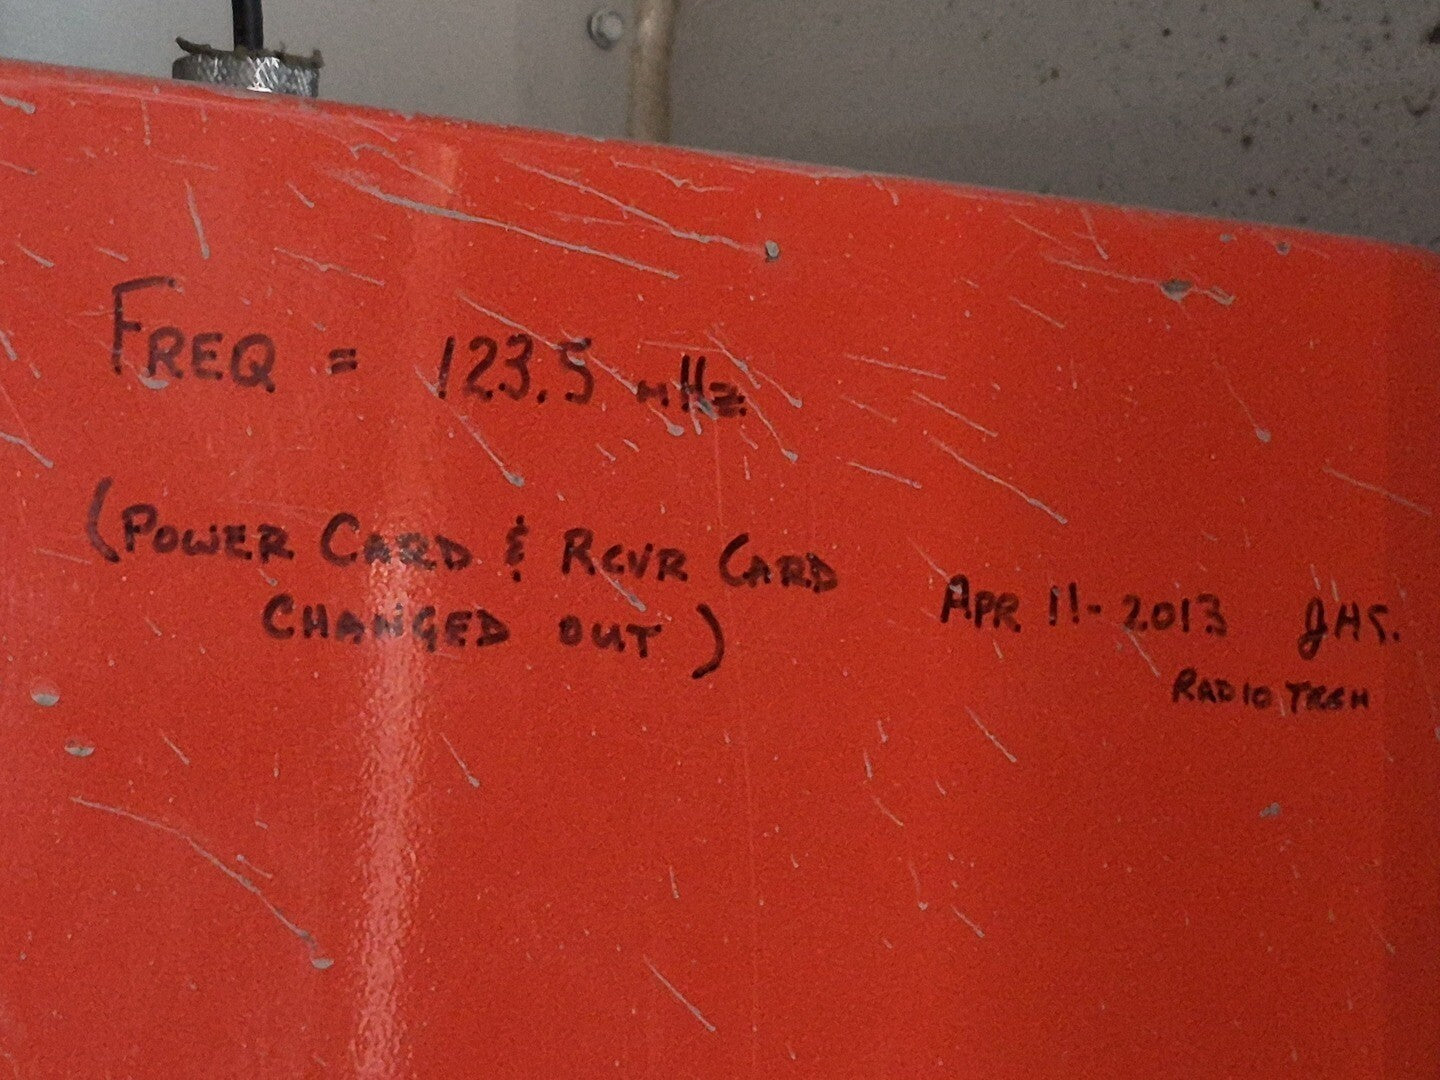 FREQ = 123.5 MHz
(POWER CARD & RCVR CARD
CHANGED OUT)
APR 11-2013 JHS.
RADIO TECH